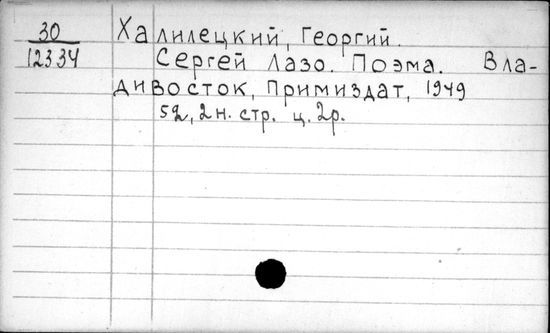 30 Халилецкий, Георгий.
12334 Сергей Лазо. Поэма. Вла-
дивосток, Примиздат, 1949
52, 2 н. стр. ц. 2р.